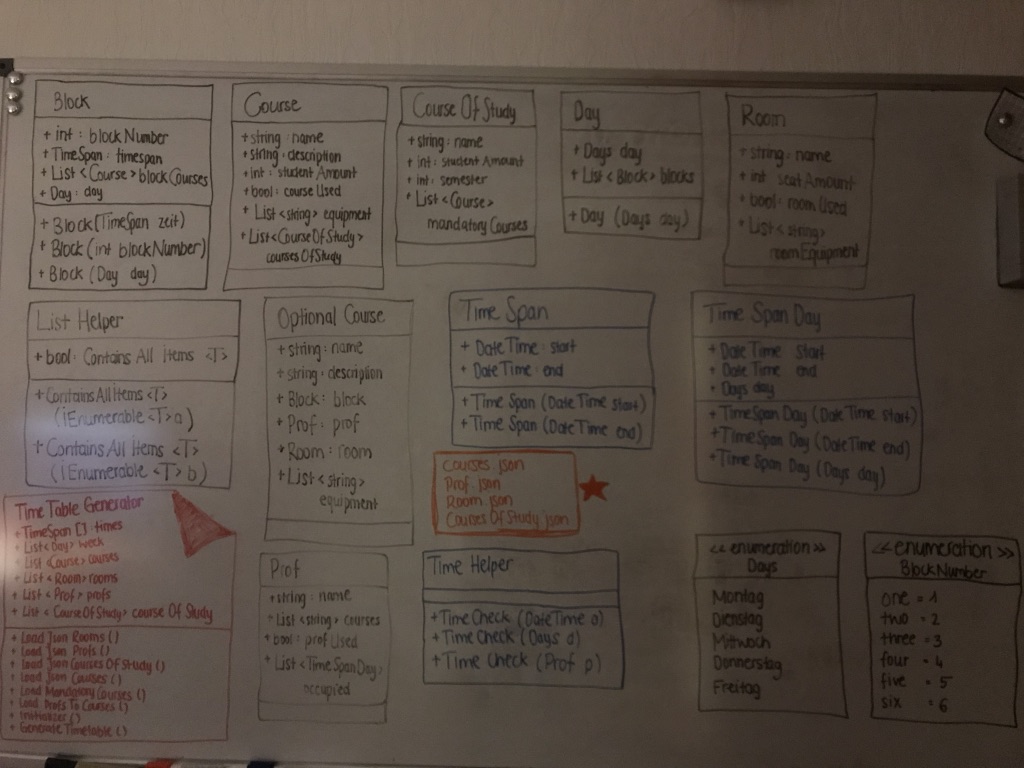 Block
+ int : blockNumber
+ TimeSpan : timespan
+ List <Course> blockCourses
+ Day : day
+ Block (TimeSpan zeit)
+ Block (int blockNumber)
+ Block (Day day)
Course
+ string : name
+ string : description
+ int : student Amount
+ bool : course Used
+ List <string> equipment
+ List <Course Of Study>
courses Of Study
Course Of Study
+ string : name
+ int : student Amount
+ int : semester
+ List <Course>
mandatory Courses
Day
+ Days day
+ List <Block> blocks
+ Day (Days day)
Room
+ string : name
+ int seat Amount
+ bool : room Used
+ List <string>
room Equipment
List Helper
+ bool : Contains All Items <T>
+ Contains All Items <T>
(iEnumerable <T> a)
+ Contains All Items <T>
(iEnumerable <T> b)
Optional Course
+ string : name
+ string : description
+ Block : block
+ Prof : prof
+ Room : room
+ List <string>
equipment
Time Span
+ Date Time : start
+ Date Time : end
+ Time Span (Date Time start)
+ Time Span (Date Time end)
Time Span Day
+ Date Time start
+ Date Time end
+ Days day
+ Time Span Day (Date Time start)
+ Time Span Day (Date Time end)
+ Time Span Day (Days day)
Courses.json
Prof.json
Room.json
Courses Of Study.json
Time Table Generator
+ TimeSpan [] : times
+ List <Day> week
+ List <Course> courses
+ List <Room> rooms
+ List <Prof> profs
+ List <Course Of Study> course Of Study
+ Load Json Rooms ()
+ Load Json Profs ()
+ Load Json Courses Of Study ()
+ Load Json Courses ()
+ Load Mandatory Courses ()
+ Load Profs To Courses ()
+ Initializer ()
+ Generate Timetable ()
Prof
+ string : name
+ List <string> courses
+ bool : prof Used
+ List <Time Span Day>
occupied
Time Helper
+ Time Check (Date Time o)
+ Time Check (Days d)
+ Time Check (Prof p)
<< enumeration >>
Days
Montag
Dienstag
Mittwoch
Donnerstag
Freitag
<< enumeration >>
BlockNumber
one = 1
two = 2
three = 3
four = 4
five = 5
six = 6